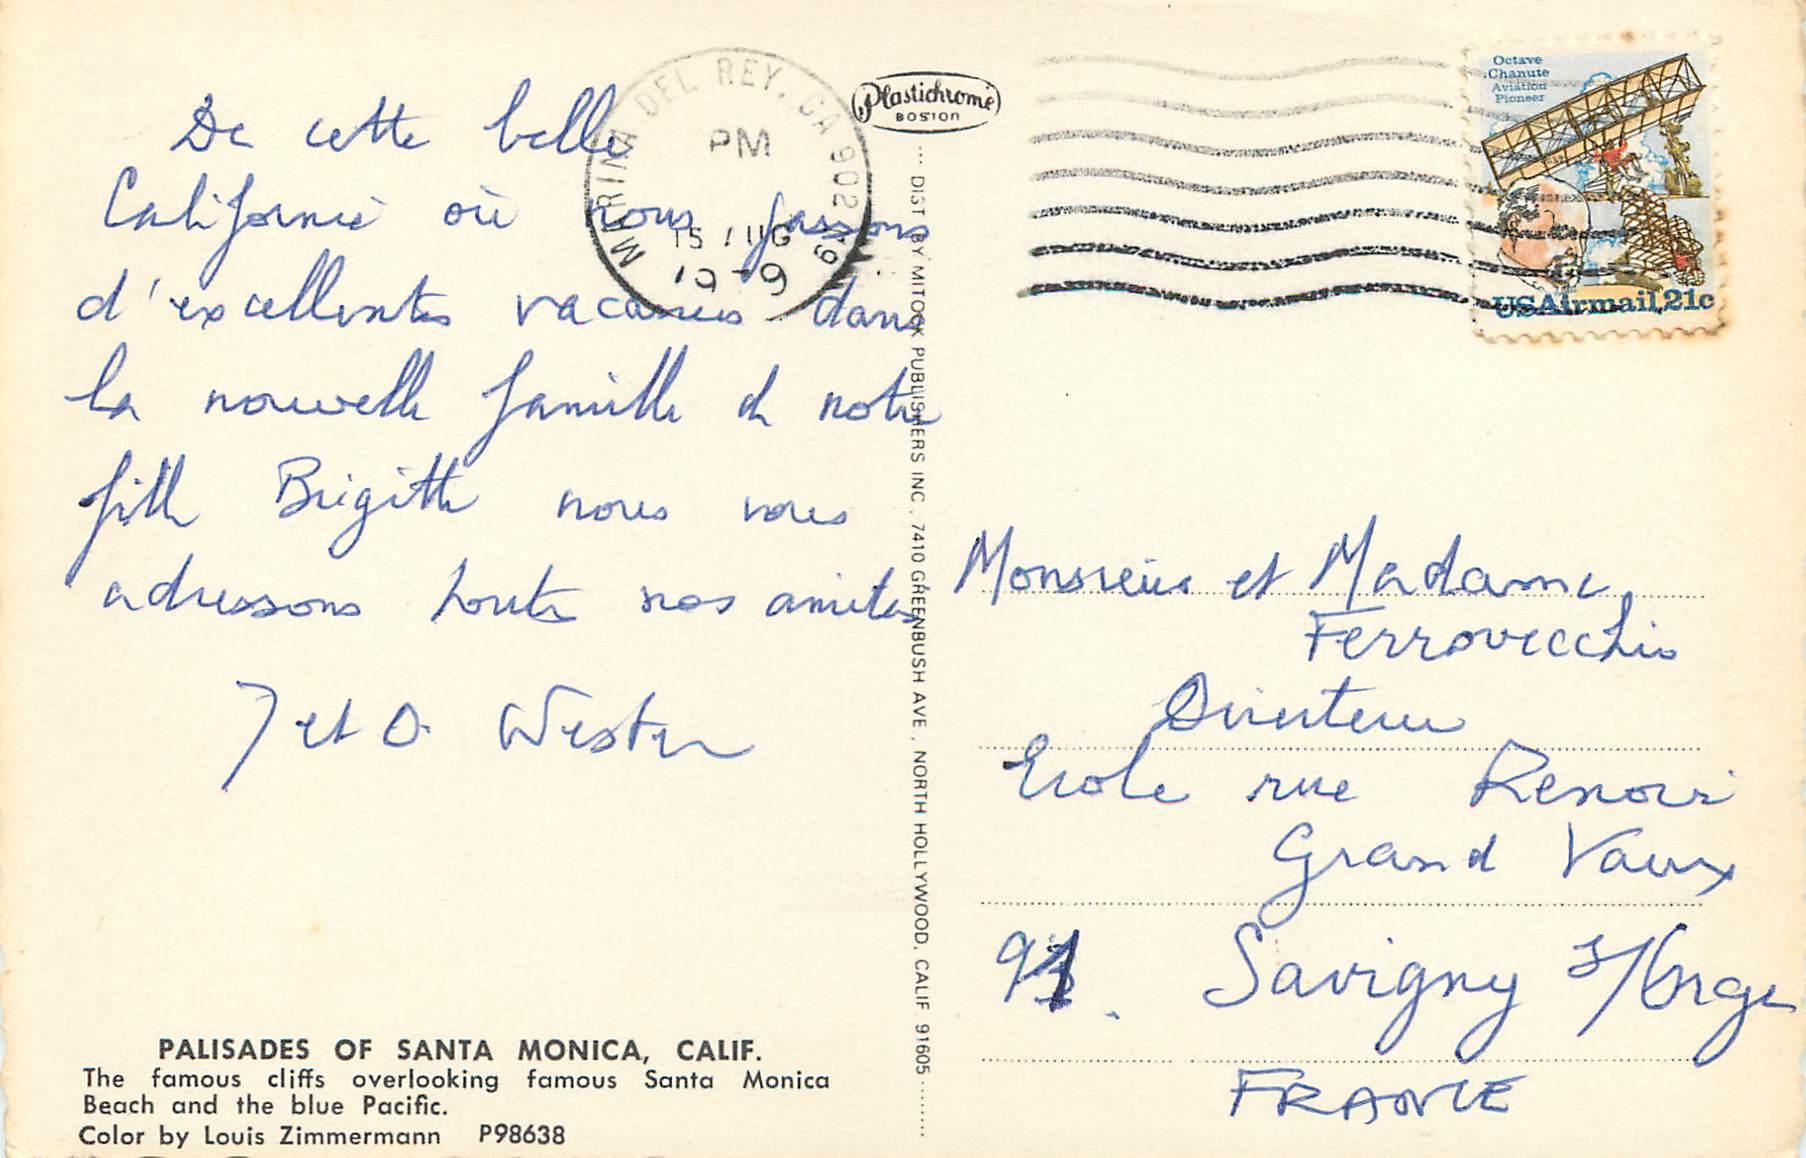 De cette belle
Californie où nous passons
d'excellentes vacances dans
la nouvelle famille de notre
fille Brigitte nous vous
adressons toutes nos amitiés
J et O. Wester
PALISADES OF SANTA MONICA, CALIF.
The famous cliffs overlooking famous Santa Monica
Beach and the blue Pacific.
Color by Louis Zimmermann P98638
MARINA DEL REY, CA 902
PM
15 AUG
Plastichrome
BOSTON
DIST BY MITOCK PUBLISHERS INC., 7410 GREENBUSH AVE., NORTH HOLLYWOOD, CALIF. 91605
Octave
Chanute
Aviation
Pioneer
USAirmail 21c
Monsieur et Madame
Ferrovecchio
Directeur
Ecole rue Renoir
Grand Vaux
91. Savigny s/Orge
FRANCE